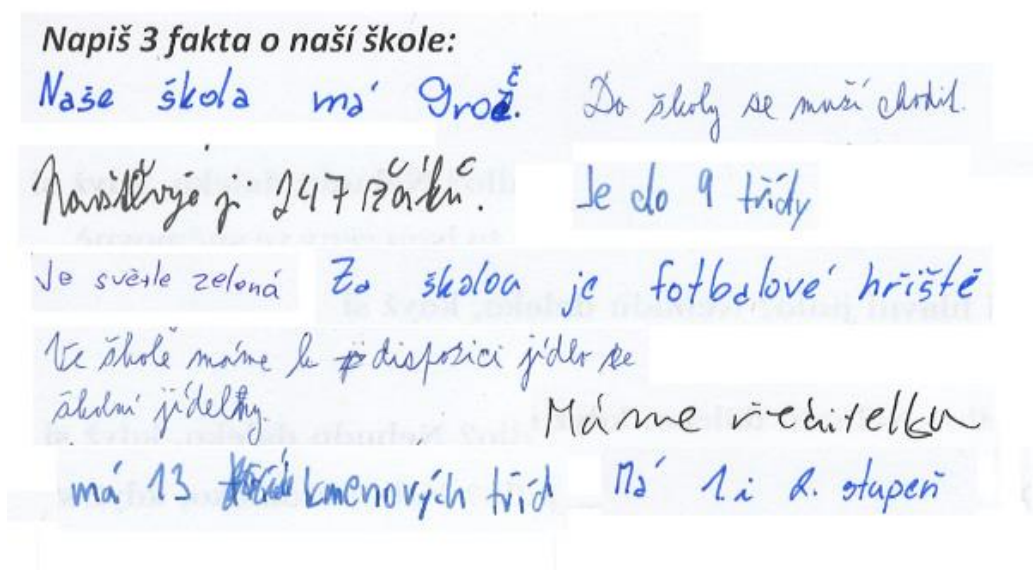 Napiš 3 fakta o naší škole:
Naše škola má 9 roč. Do školy se musí chodit.
Navštěvuje ji 247 žáků. Je do 9 třídy
Je světle zelená Za školou je fotbalové hřiště
Ve škole máme k dispozici jídlo ze
školní jídelny. Máme ředitelku
má 13 kmenových tříd Má 1 i 2. stupeň